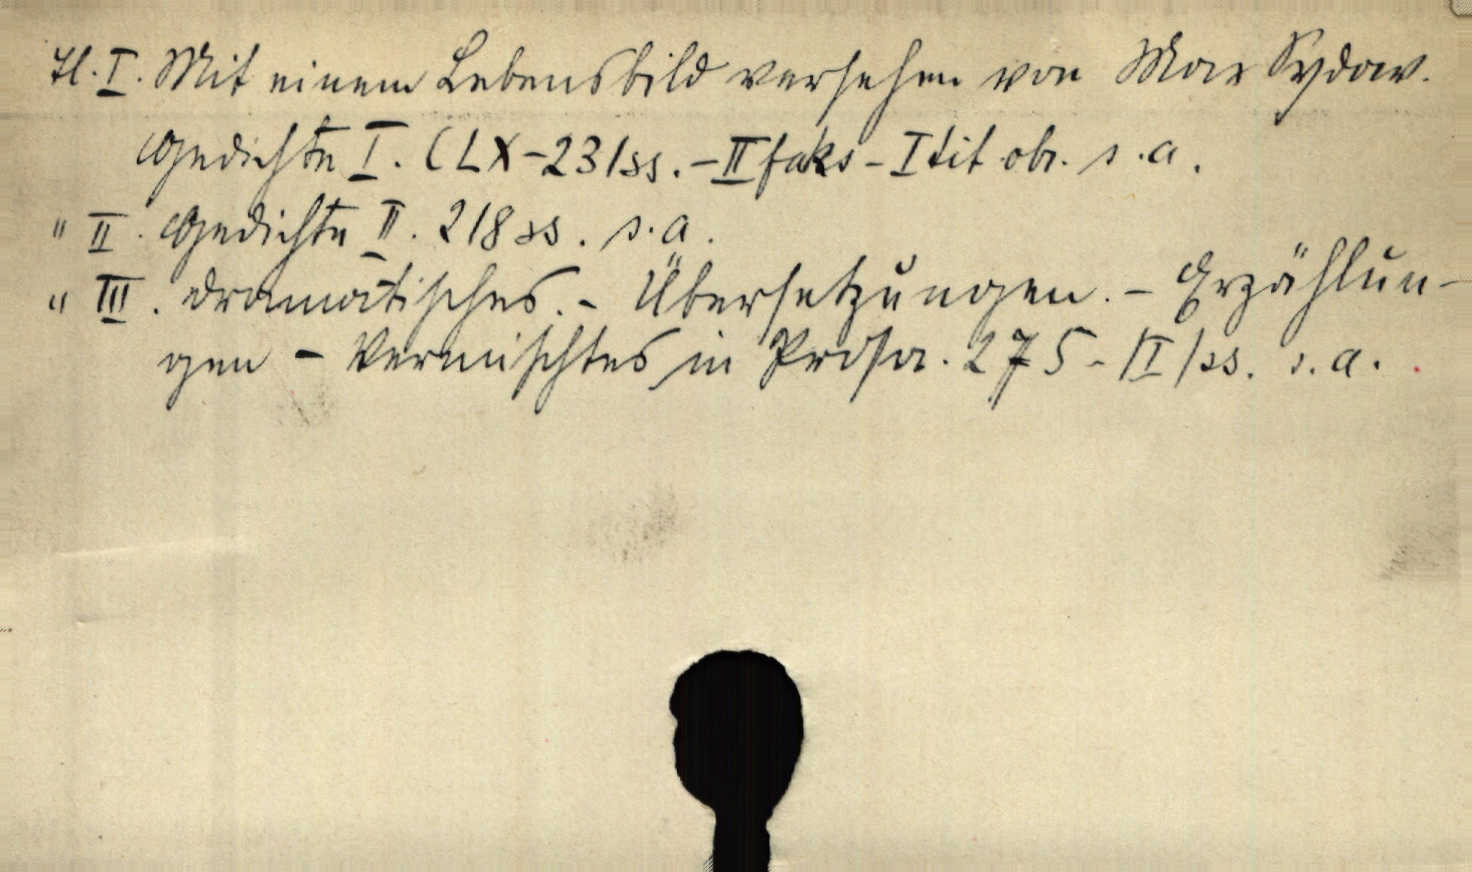 Tl. I. Mit einem Lebensbild versehen von Max Sydow.
Gedichte I. CLX-231ss. - II faks - I tit obr. s. a.
" II. Gedichte II. 218 ss. s. a.
" III. Dramatisches. - Übersetzungen. - Erzählun-
gen - Vermischtes in Prosa. 275 - /I/ ss. s. a.